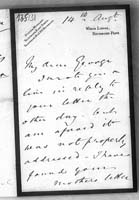 14th Augt
White Lodge,
Richmond Park
My dear George
I wrote you a
line in reply to
your letter the
other day. but
am afraid it
was not properly
addressed. I have
found your
mothers letter